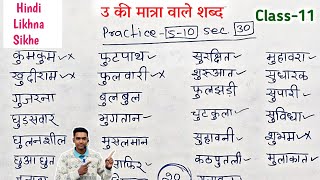 Hindi
Likhna
Sikhe
उ की मात्रा वाले शब्द
Class-11
Practice - 5-10 sec 30
कुमकुम
खुदीराम
गुजरना
घुड़सवार
घुलनशील
छुआ छूत
फुटपाथ
फुलवारी
बुलबुल
भुगतान
मुसलमान
सुरक्षित
शुरुआत
फुलझड़ी
चुटकुला
सुहावनी
कठपुतली
मुहावरा
सुधारक
सुपारी
सुविधा
शुभम
मुलाकात